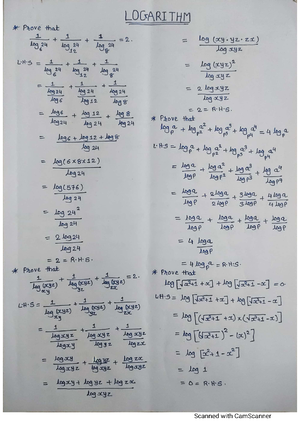 LOGARITHM
* Prove that
1/log₆24 + 1/log₁₂24 + 1/log₈24 = 2.
L·H·S = 1/log₆24 + 1/log₁₂24 + 1/log₈24
= 1/(log24/log6) + 1/(log24/log12) + 1/(log24/log8)
= log6/log24 + log12/log24 + log8/log24
= (log6 + log12 + log8)/log24
= log(6×8×12)/log24
= log(576)/log24
= log24²/log24
= 2log24/log24
= 2 = R·H·S.
* Prove that
1/log_xy(xyz) + 1/log_yz(xyz) + 1/log_zx(xyz) = 2.
L·H·S = 1/log_xy(xyz) + 1/log_yz(xyz) + 1/log_zx(xyz)
= 1/(logxyz/logxy) + 1/(logxyz/logyz) + 1/(logxyz/logzx)
= logxy/logxyz + logyz/logxyz + logzx/logxyz
= (logxy + logyz + logzx)/logxyz
= log(xy·yz·zx)/logxyz
= log(xyz)²/logxyz
= 2logxyz/logxyz
= 2 = R·H·S.
* Prove that
log_p a + log_p² a² + log_p³ a³ + log_p⁴ a⁴ = 4log_p a
L·H·S = log_p a + log_p² a² + log_p³ a³ + log_p⁴ a⁴
= loga/logp + loga²/logp² + loga³/logp³ + loga⁴/logp⁴
= loga/logp + 2loga/2logp + 3loga/3logp + 4loga/4logp
= loga/logp + loga/logp + loga/logp + loga/logp
= 4 loga/logp
= 4log_p a = R·H·S.
* Prove that
log[√x²+1 + x] + log[√x²+1 - x] = 0
L·H·S = log[√x²+1 + x] + log[√x²+1 - x]
= log[(√x²+1 + x) × (√x²+1 - x)]
= log[(√x²+1)² - (x)²]
= log [x²+1-x²]
= log 1
= 0 = R·H·S.
Scanned with CamScanner